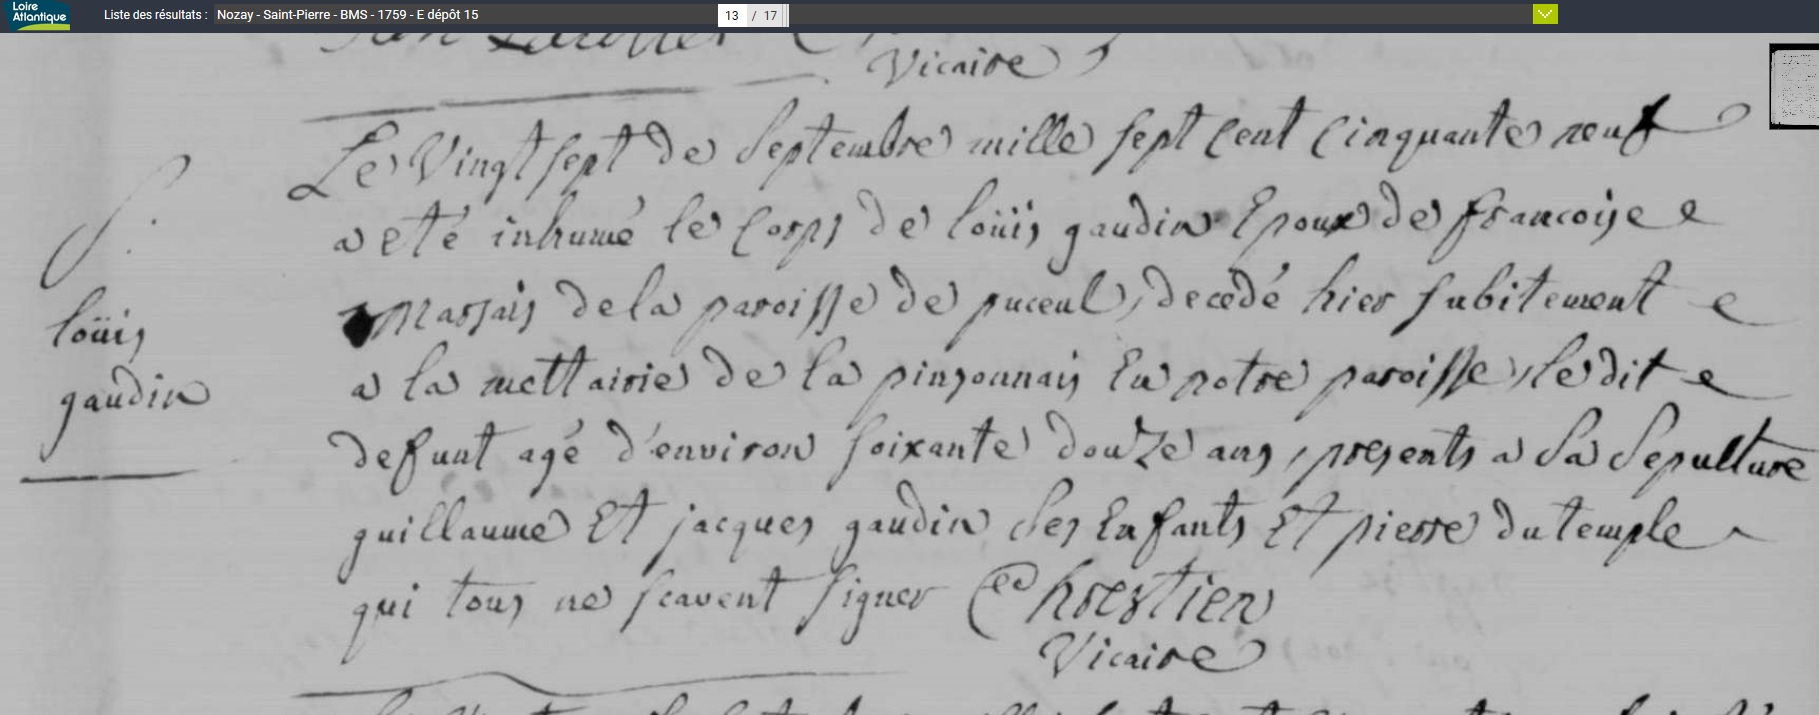 Loire
Atlantique
Liste des résultats :
Nozay - Saint-Pierre - BMS - 1759 - E dépôt 15
13 / 17
Vicaire
Le Vingt sept de Septembre mille sept cent cinquante neuf
a eté inhumé le corps de loüis gaudin Epoux de francoise
Massais de la paroisse de puceul, decedé hier subitement
a la mettairie de la pinsonnais En notre paroisse, le dit
defunt agé d'environ soixante douze ans, presents a Sa Sepulture
guillaume Et jacques gaudin Ses Enfants Et pierre du temple
qui tous ne scavent signer Chrestien
Vicaire
S.
loüis
gaudin